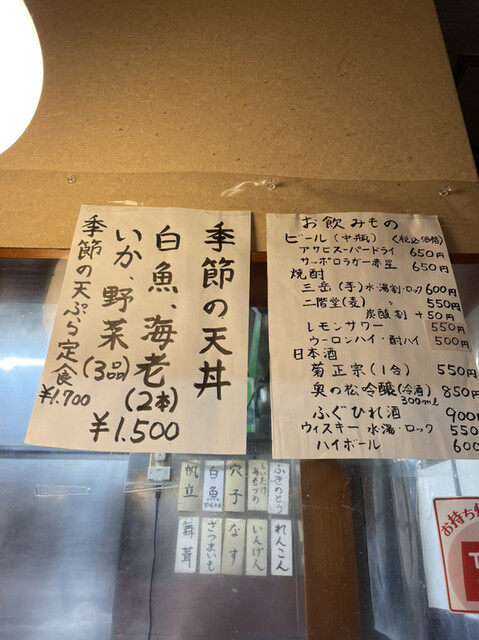 季節の天丼
白魚、海老(2本)
いか、野菜(3品)
¥1.500
季節の天ぷら定食
¥1.700
お飲みもの
ビール(中瓶) <税込価格>
アサヒスーパードライ 650円
サッポロラガー赤星 650円
焼酎
三岳(芋)水・湯割・ロック 600円
二階堂(麦) 〃 550円
炭酸割 +50円
レモンサワー 550円
ウーロンハイ・酎ハイ 500円
日本酒
菊正宗(1合) 550円
奥の松吟醸(冷酒) 850円
300ml
ふぐひれ酒 900
ウィスキー 水・湯・ロック 550
ハイボール 600
ふきのとう
穴子
白魚
帆立
れんこん
いんげん
なす
さつまいも
舞茸
お持ち
T